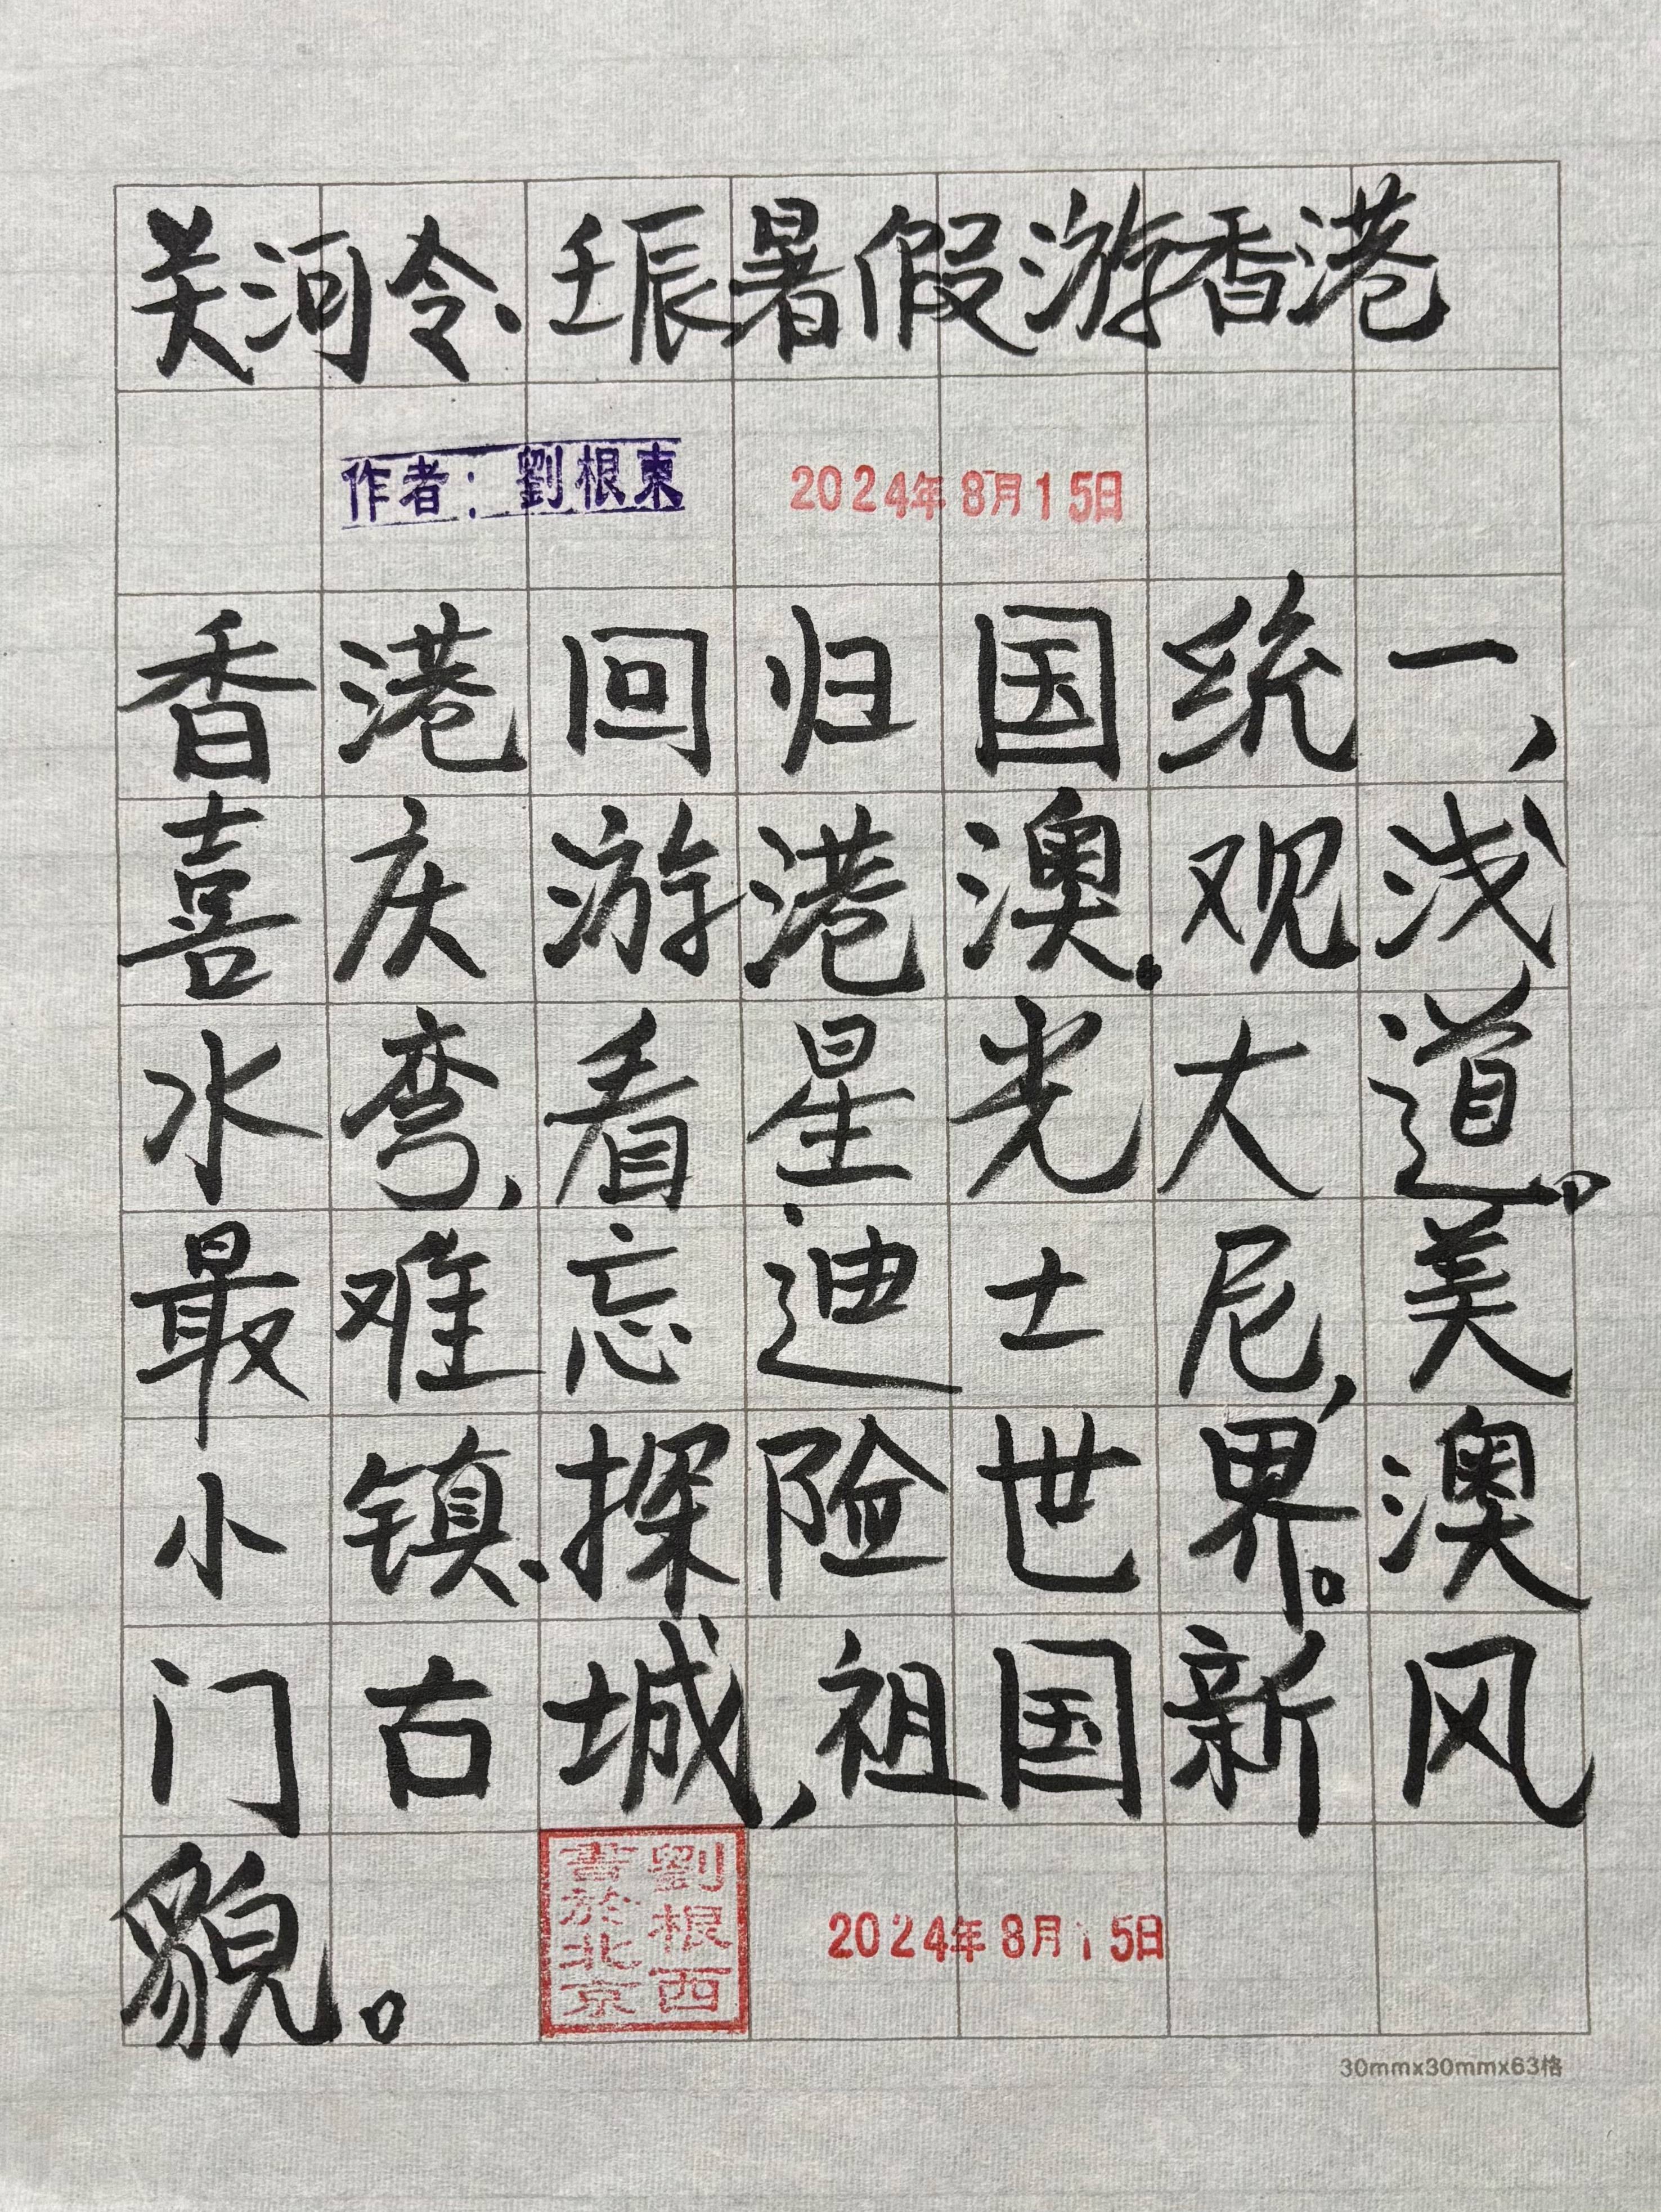 关河令、壬辰暑假游香港
作者：劉根東 2024年8月15日
香港回归国统一，
喜庆游港澳.观浅
水弯，看星光大道。
最难忘迪士尼，美
小镇、探险世界。澳
门古城，祖国新风
貌。
劉根西書於北京 2024年8月15日
30mmx30mmx63格